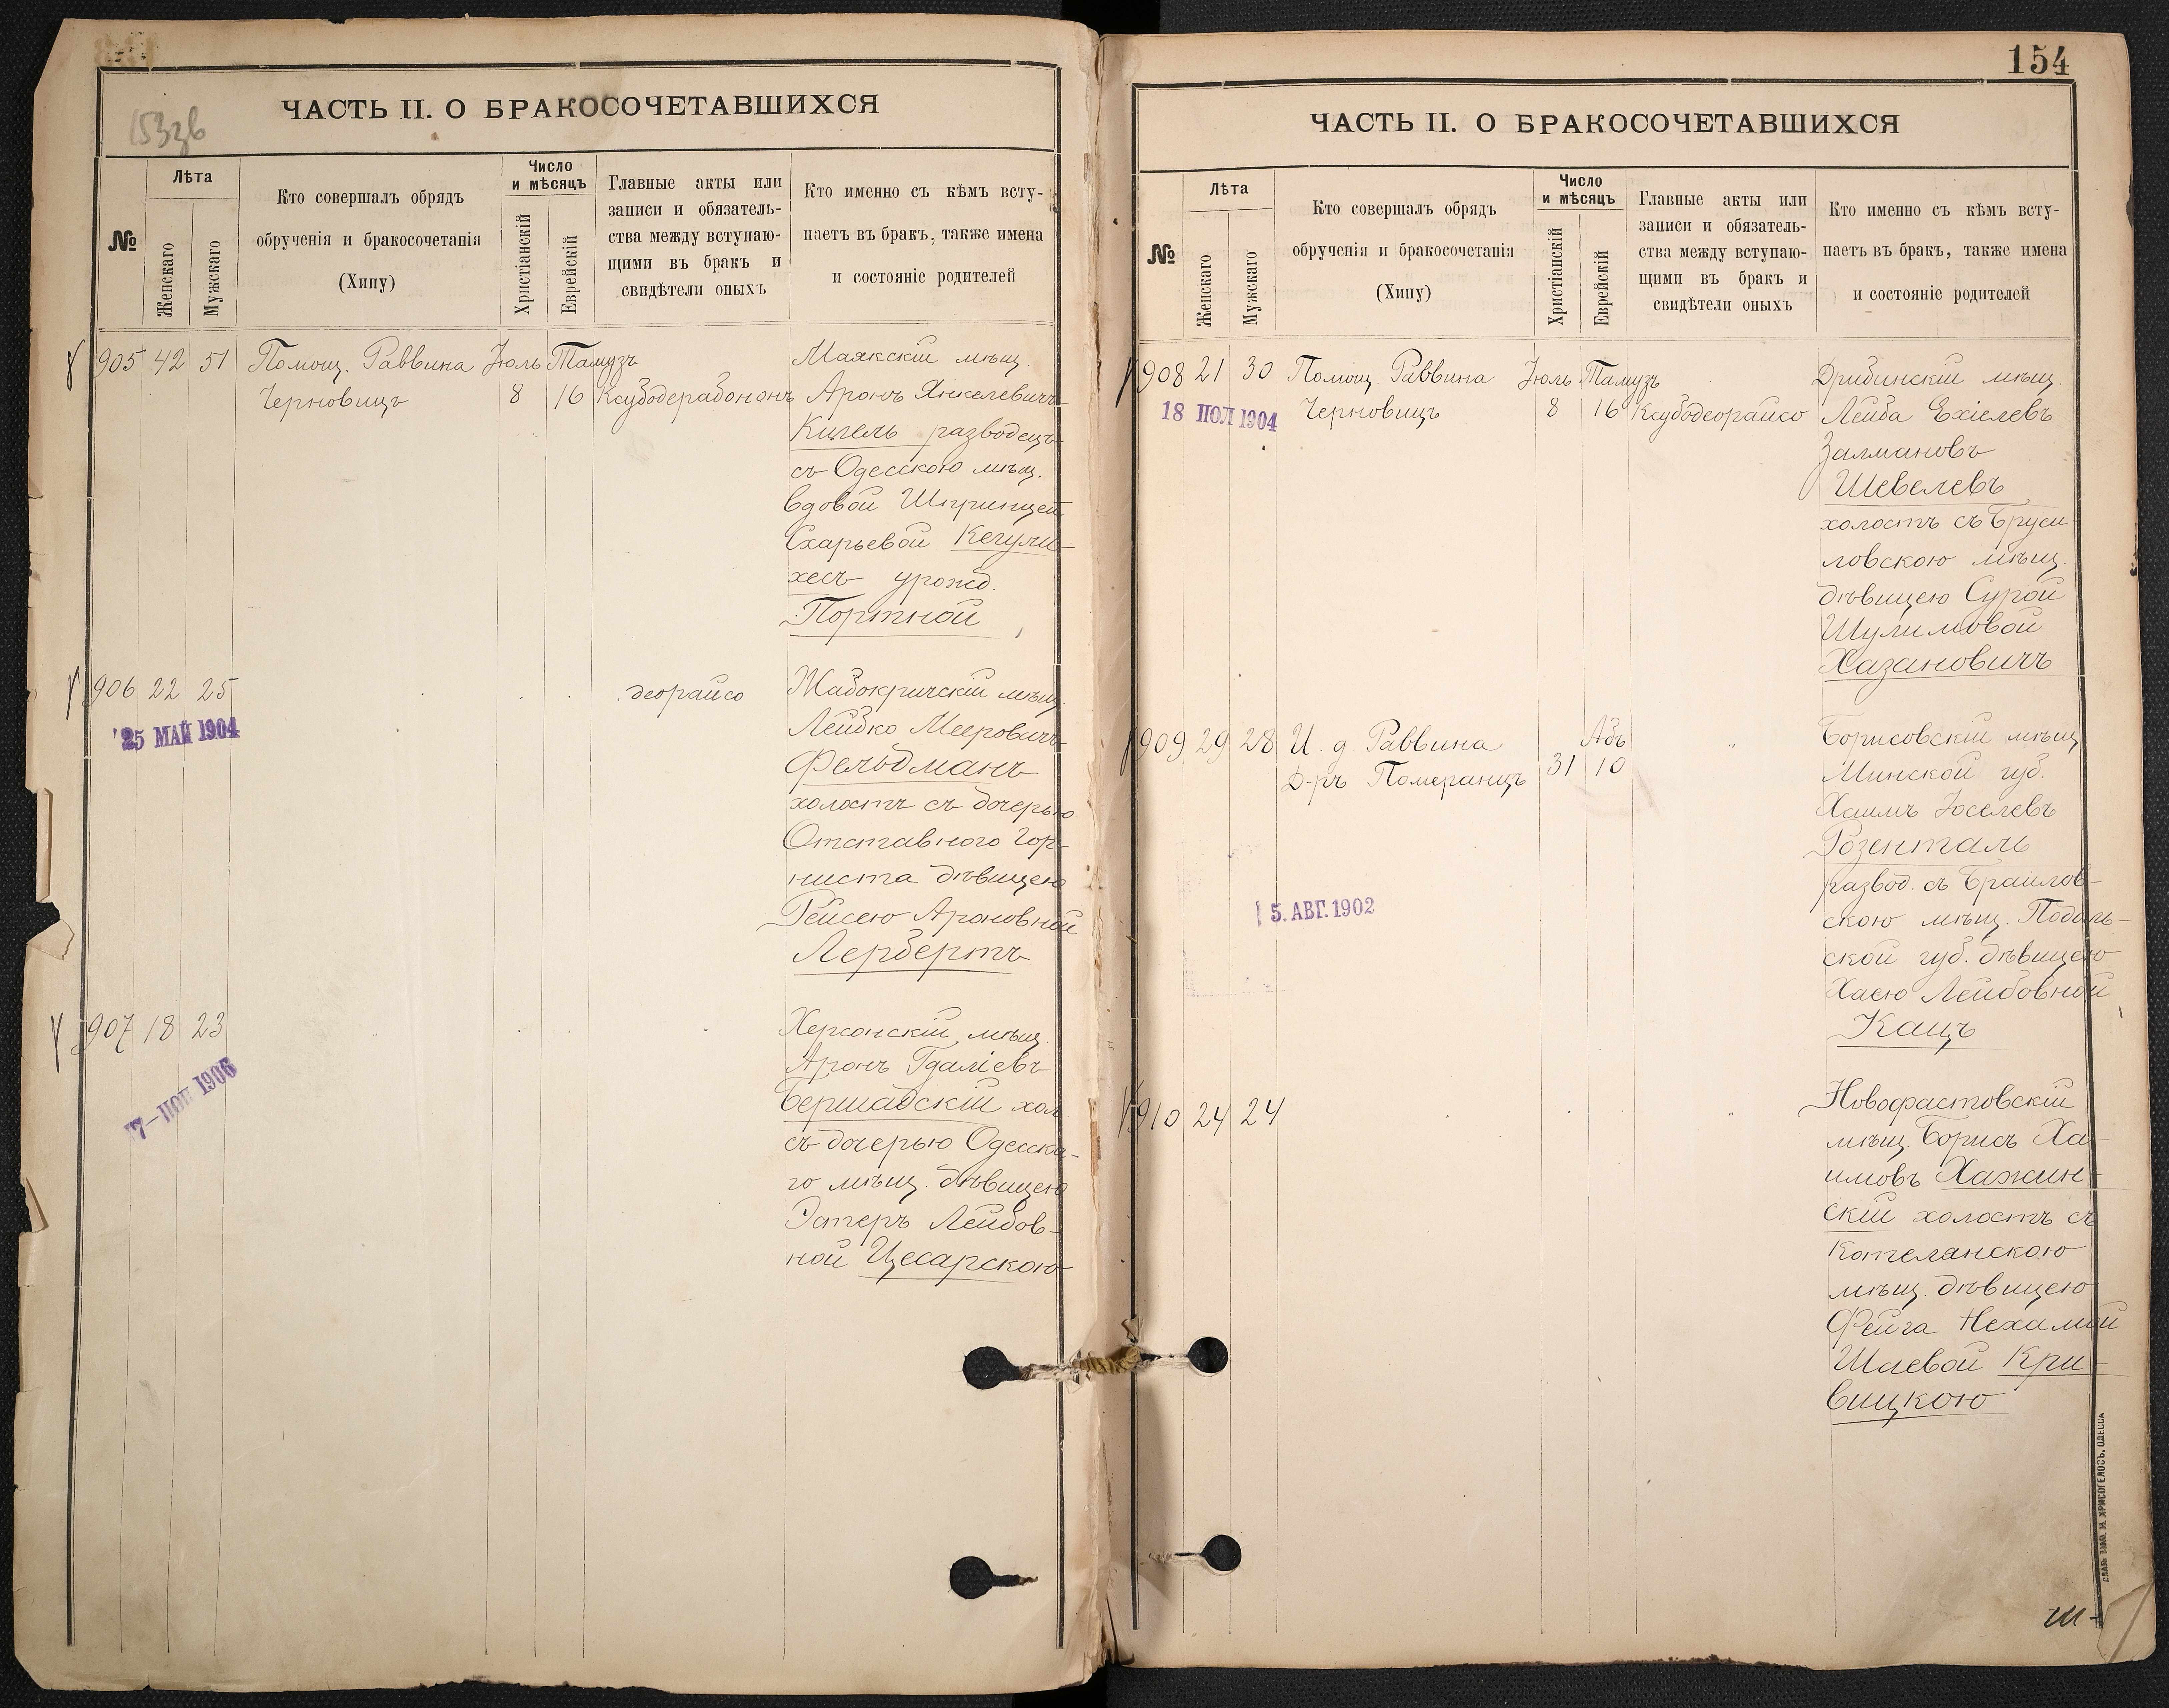 153зв
ЧАСТЬ II. О БРАКОСОЧЕТАВШИХСЯ
№
Лѣта
Женскаго
Мужскаго
Кто совершалъ обрядъ
обрученія и бракосочетанія
(Хипу)
Число
и мѣсяцъ
Христіанскій
Еврейскій
Главные акты или
записи и обязатель-
ства между вступаю-
щими въ бракъ и
свидѣтели оныхъ
Кто именно съ кѣмъ всту-
паетъ въ бракъ, также имена
и состояніе родителей
905 42 51 Помощ. Раввина Іюль Тамузъ
Черновицъ 8 16 Ксубодерабононъ
Маякскій мѣщ.
Аронъ Янкелевичъ
Кигель разводецъ
съ Одесскою мѣщ.
вдовой Шпринцей
Схарьевой Кегули-
хесъ урожд.
Портной
906 22 25 деорайсо
25 МАЙ 1904
Жабокричскій мѣщ.
Лейбко Мееровичъ
Фельдманъ
холостъ съ дочерью
Отставного Гор-
ниста дѣвицею
Рейсею Ароновной
Лербертъ
907 18 23
1906
Херсонскій мѣщ.
Аронъ Гдаліевъ
Бершадскій хол.
съ дочерью Одесска-
го мѣщ. дѣвицею
Эстеръ Лейбов-
ной Цесарскою
154
ЧАСТЬ II. О БРАКОСОЧЕТАВШИХСЯ
№
Лѣта
Женскаго
Мужскаго
Кто совершалъ обрядъ
обрученія и бракосочетанія
(Хипу)
Число
и мѣсяцъ
Христіанскій
Еврейскій
Главные акты или
записи и обязатель-
ства между вступаю-
щими въ бракъ и
свидѣтели оныхъ
Кто именно съ кѣмъ всту-
паетъ въ бракъ, также имена
и состояніе родителей
908 21 30 Помощ. Раввина Іюль Тамузъ
18 ІЮЛ 1904
Черновицъ 8 16 Ксубодеорайсо
Дрибинскій мѣщ.
Лейба Ехіелевъ
Залмановъ
Шевелевъ
холостъ съ Бруси-
ловскою мѣщ.
дѣвицею Сурой
Шулимовой
Хазановичъ
909 29 28 И. д. Раввина Абъ
Д-ръ Померанцъ 31 10 "
5. АВГ. 1902
Борисовскій мѣщ.
Минской губ.
Хаимъ Іоселевъ
Розенталь
развод. съ Браилов-
скою мѣщ. Подоль-
ской губ. дѣвицею
Хаею Лейбовной
Кацъ
910 24 24
Новофастовскій
мѣщ. Борисъ Ха-
имовъ Хажин-
скій холостъ съ
Котелянскою
мѣщ. дѣвицею
Фейга Нехамой
Шаевой Кри-
вицкою